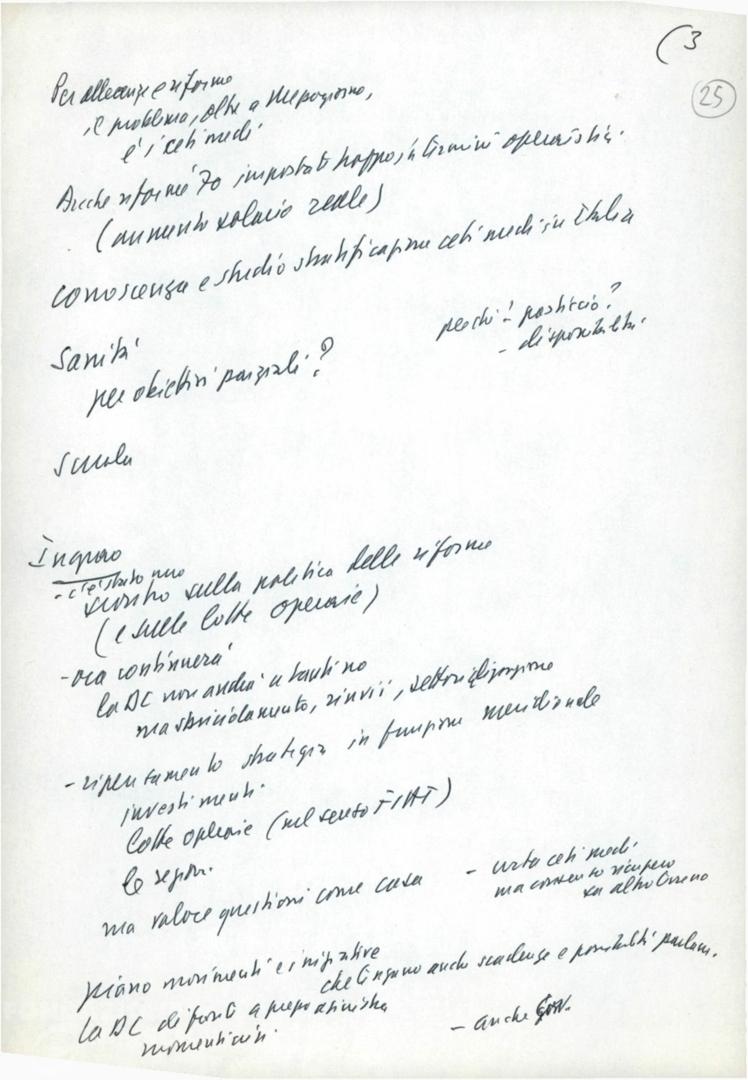 (3
25
Per alleanze e riforme
il problema, oltre a Mezzogiorno,
è i ceti medi
Anche riforme '70 impostate troppo in termini operaistici.
(aumento salario reale)
conoscenza e studio stratificazione ceti medi in Italia
Sanità
per obiettivi parziali?
perché! pasticcio?
- disponibilità
Scuola
Ingrao
- c'è stato uno
scontro sulla politica delle riforme
(e sulle lotte operaie)
- ora continuerà
la DC non andrà a
ma sbriciolamento, rinvii, settorializzazione
- ripensamento strategia in funzione meridionale
investimenti
lotte operaie (nel senso FIAT)
le regioni
ma valore questioni come casa
- urta ceti medi
ma consente recupero
su altro terreno
piano movimenti e iniziative
che tengano anche scadenze e possibilità parlam.
la DC di fronti a
momenti
- anche Gov.